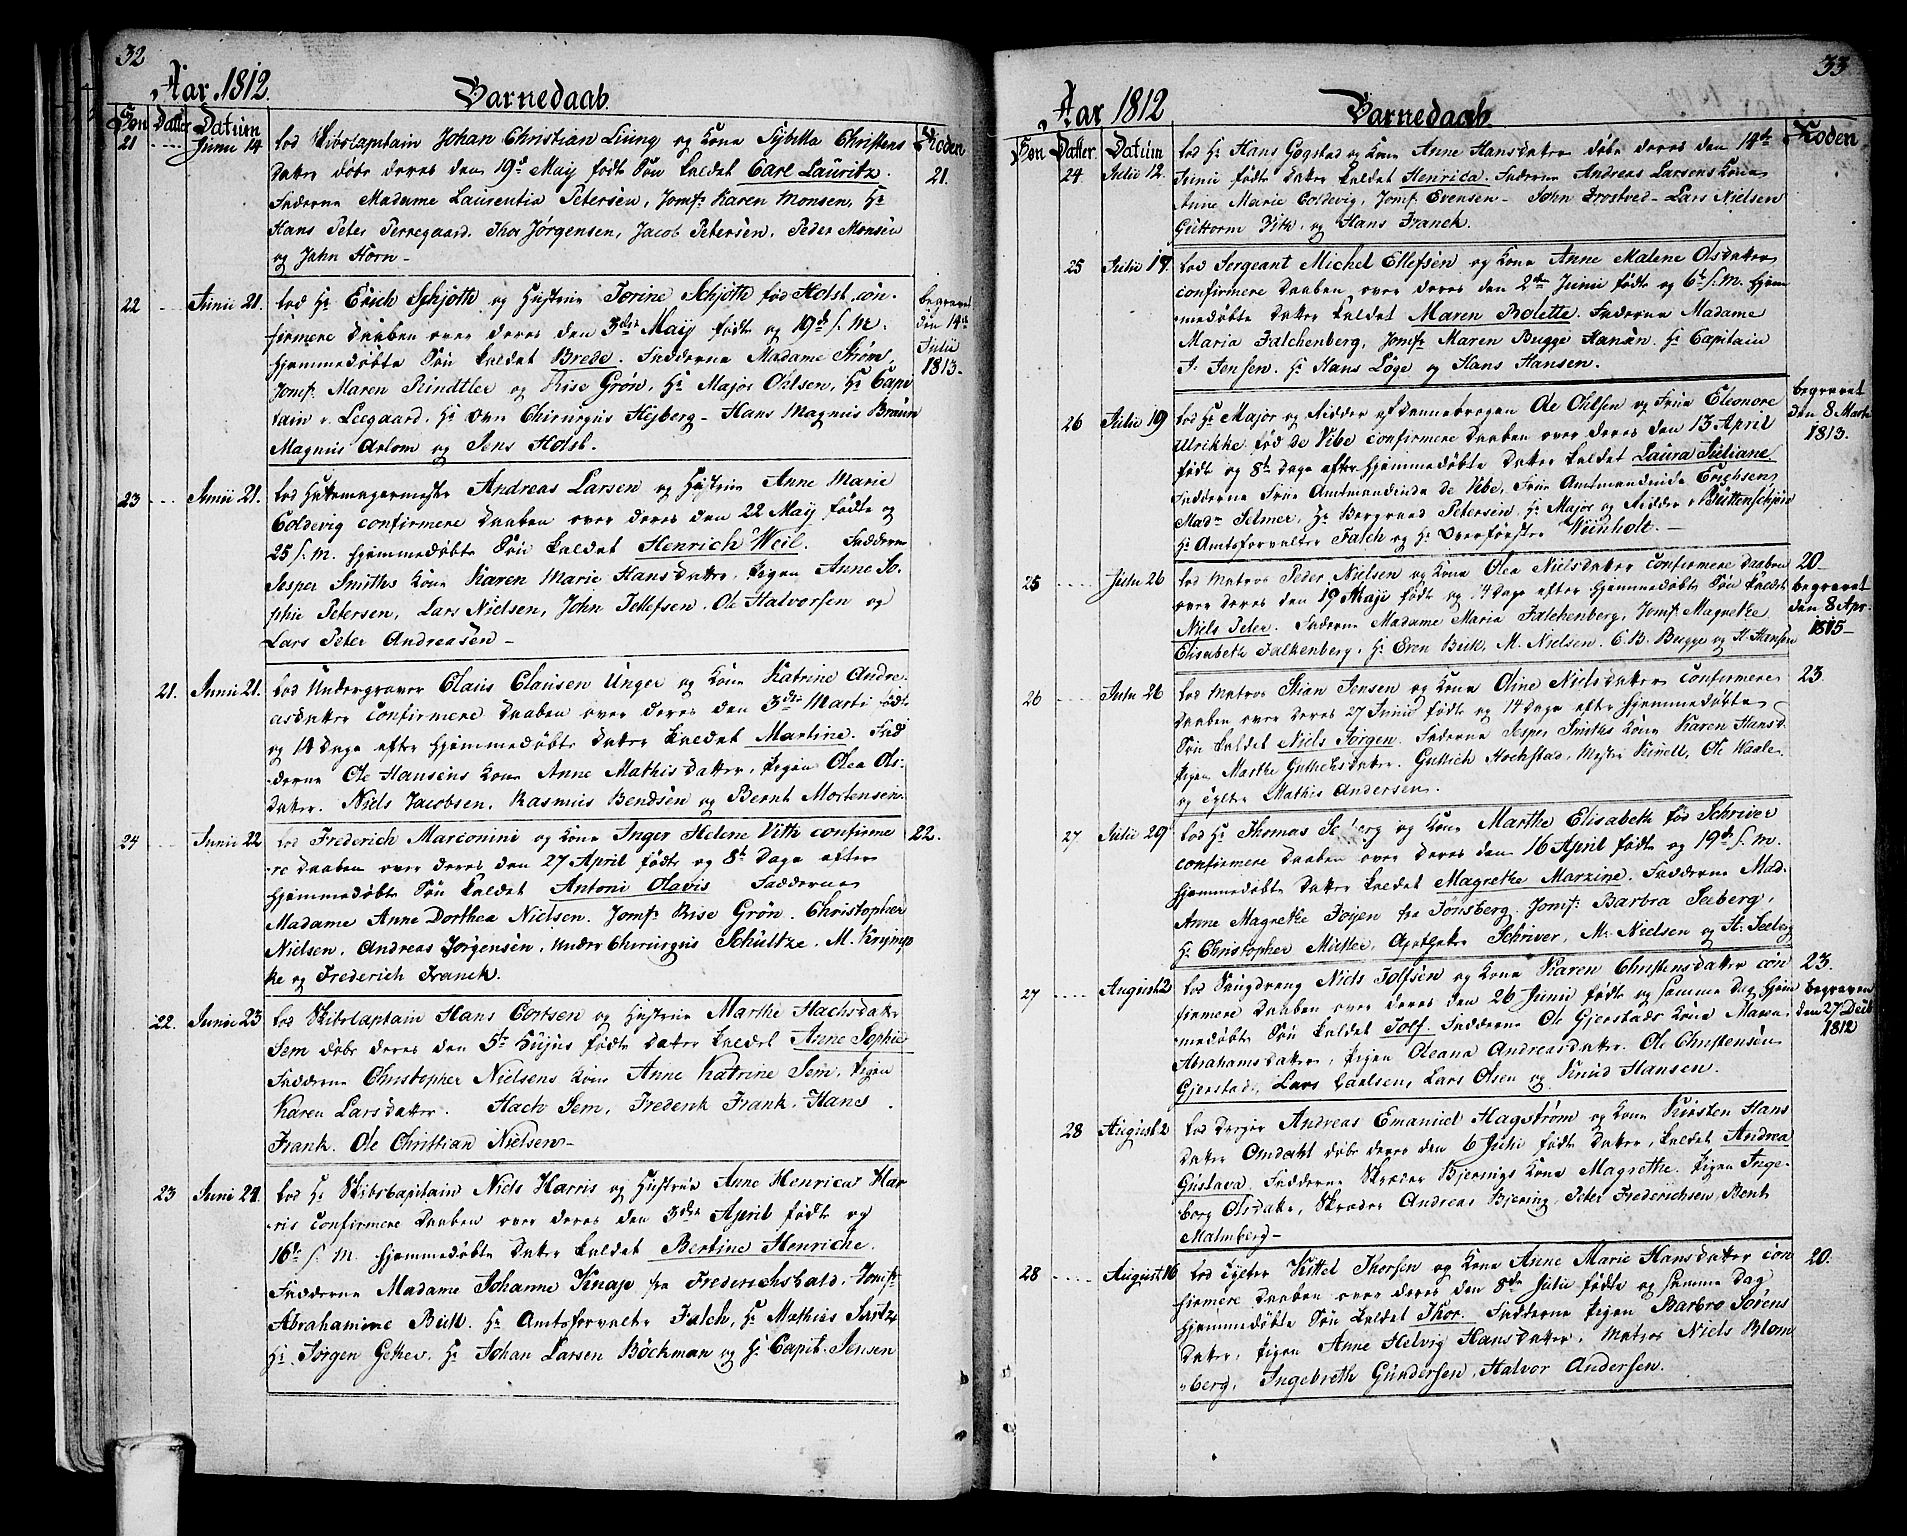 32
Aar 1812. Barnedaab.
Søn Datter Datum Roden
21 Junii 14 lod Skibscapitain Johan Christian Liung og Kone Sybilla Christens
datter døbe deres den 19de Maij fødte Søn kaldet Carl Lauritz. 21.
Fadderne Madame Laurentia Petersen, Jomfr. Karen Monsen, Hr
Hans Peter Terregaard, Thor Jørgensen, Jacob Petersen, Peder Monsen
og John Horn
22 Junii 21. lod Hr Erich Schjøtt og Hustrue Torine Schjøtt fød Holst con-
firmere Daaben over deres den 3die Maij fødte og 19de s. M.
hjemmedøbte Søn kaldet Brede. Fadderne Madame Strøm,
Jomfr. Maren Rindtler og Rise Grøn, Hr Major Ohlsen, Hr Capi
tain v. Leegaard, Hr over Chirurgus Hejberg - Hans Magnus Braun
Magnus Arlom og Jens Holst.
begravet
den 14de
Julii
1813.
23 Junii 21. lod Hattemagermester Andreas Larsen og Hustrue Anne Marie
Coldevig confirmere Daaben over deres den 22 Maij fødte og
25 s. M. hjemmedøbte Søn kaldet Henrich Weil. Fadderne
Jesper Smiths Kone Karen Marie Hansdatter, Pigen Anne So-
phie Petersen, Lars Nielsen, John Tellefsen, Ole Halvorsen og
Lars Peter Andreasen -
21. Junii 21. lod Undergraver Claus Clausen Unger og Kone Katrine Andre-
asdatter confirmere Daaben over deres den 3die Marti fødte
og 14 Dage efter hjemmedøbte Datter kaldet Martine. Fad
derne Ole Hansens Kone Anne Mathisdatter, Pigen Olea Ols-
datter. Niels Jacobsen, Rasmus Bendsen og Bernt Mortensen
24 Junii 22 lod Frederich Marconini og Kone Inger Helene Vith confirme 22.
re Daaben over deres den 27 April fødte og 8te Dage efter
hjemmedøbte Søn kaldet Antoni Olavis Fadderne
Madame Anne Dorthea Nielsen. Jomfr. Rise Grøn. Christopher
Nielsen, Andreas Jørgensen, under Chirurgus Schultze, M. Krymp
ke og Frederich Franck.
22. Junii 23 lod Skibscaptain Hans Cortsen og Hustrue Marthe Hachsdatter
Sem døbe deres den 5te Hujus fødte Datter kaldet Anne Sophie
Fadderne Christopher Nielsens Kone Anne Katrine Sem, Pigen
Karen Larsdatter. Hach Sem, Frederik Frank, Hans
Frank. Ole Christian Nielsen -
23 Juni 24. lod Hr Skibscapitain Niels Harris og Hustrue Anne Henrica Har
ris confirmere Daaben over deres den 3die April fødte og
16de s. M. hjemmedøbte Datter kaldet Bertine Henriche.
Fadderne Madame Johanne Knap fra Frederichshald, Jomfr
Abrahamine Buk. Hr Amtsforvalter Falch, Hr Mathias Sartz
Hr Jørgen Gether, Hr Johan Larsen Böckman og Hr Capit. Jensen
33
Aar 1812 Barnedaab.
Søn Datter Datum Roden
24. Julii 12. lod Hr Hans Gogstad og Kone Anne Hansdatter døbe deres den 14de
Junii fødte Datter kaldet Henrica. Fadderne Andreas Larsens Kone
Anne Marie Coldevig, Jomfr Evensen - John Frostved - Lars Nielsen
Guttorm Vith, og Hans Franck.
25 Julii 17. lod Sergeant Michel Ellefsen og Kone Anne Malene Olsdatter
confirmere Daaben over deres den 2den Junii fødte og 6te s. M. hjem
medøbte Datter kaldet Maren Bolette. Fadderne Madame
Maria Falchenberg, Jomfr Maren Bugge Hansen. Hr Capitain
J. Jensen. Hr Hans Loge og Hans Hansen.
26 Julii 19 lod Hr Major og Ridder af Dannebrogen Ole Ohlsen og Frue Eleonore
Ulrikke fød de Vibe confirmere Daaben over deres den 13 April
fødte og 8te Dage efter hjemmedøbte Datter kaldet Laura Juliane
Fadderne Frue Amtmandinde de Vibe, Frue Amtmandinde Erichsen,
Mad. Selmer, Hr Bergraad Petersen, Hr Major og Ridder v Büttenschøn
Hr Amtsforvalter Falch og Hr Overførster Wiinholt. -
begravet
den 8 Marti
1813.
25 Julii 26 lod Matros Peder Nielsen og Kone Olea Nielsdatter confirmere Daaben
over deres den 19 Maji fødte og 14 Dage efter hjemmedøbte Søn kaldet
Niels Peter. Fadderne Madame Maria Falchenberg, Jomfr. Magrethe
Elisabeth Falkenberg, Hr Even Buk, M. Nielsen. C. B. Bugge og H. Hansen
20
begravet
den 8 Apr.
1815 -
26 Julii 26 lod Matros Stian Jensen og Kone Oline Nielsdatter confirmere 23.
Daaben over deres 27 Junii fødte og 14 Dage efter hjemmedøbte
Søn kaldet Niels Jørgen. Fadderne Jesper Smiths Kone Karen Hansd.
Pigen Marthe Guttichsdatter. Guttich Hochstad, Mester Kinell, Ole Waale
og Cylter Mathis Andersen.
27 Julii 29 lod Hr Thomas Seeberg og Kone Marthe Elisabeth fød Schriver
confirmere Daaben over deres den 16 April fødte og 19de s. M.
hjemmedøbte Datter kaldet Magrethe Marzine. Fadderne Mad.
Anne Magrethe Foijen fra Tønsberg. Jomfr: Barbra Seeberg,
Hr Christopher Møller, Apotheker Schriver, M: Nielsen og H: Seeberg
27 August 2 lod Saugdreng Niels Tolfsen og Kone Karen Christensdatter con
firmere Daaben over deres den 26 Junii fødte og samme Dag hjem
medøbte Søn kaldet Tolf. Fadderne Ole Gjerstads Kone Maria
Abrahamsdatter, Pigen Oleana Andreasdatter. Ole Christensen
Gjerstad, Lars Carlsen, Lars Olsen og Knud Hansen.
23.
begraven
den 27 Decb
1812
28 August 2 lod Andreas Emanuel Hagstrøm og Kone Kirsten Hans
datter Omdahl døbe deres den 6 Julii fødte Datter, kaldet Andrea
Gustava. Fadderne Skræder Bjerings Kone Magrethe. Pigen Inge-
borg Olsdatter, Skræder Andreas Bjering, Peter Frederichsen, Bent
Malmberg -
28 August 16 lod Cylter Kittel Thorsen og Kone Anne Marie Hansdatter con 20.
firmere Daaben over deres den 8de Julii fødte og samme Dag
hjemmedøbte Søn kaldet Thor. Fadderne Pigen Barbro Sørens
datter, Pigen Anne Helvig Hansdatter, Matros Niels Blom
berg, Ingebreth Gundersen, Halvor Andersen.